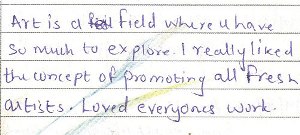 Art is a field where u have
so much to explore. I really liked
the concept of promoting all fresh
artists. Loved everyones work.